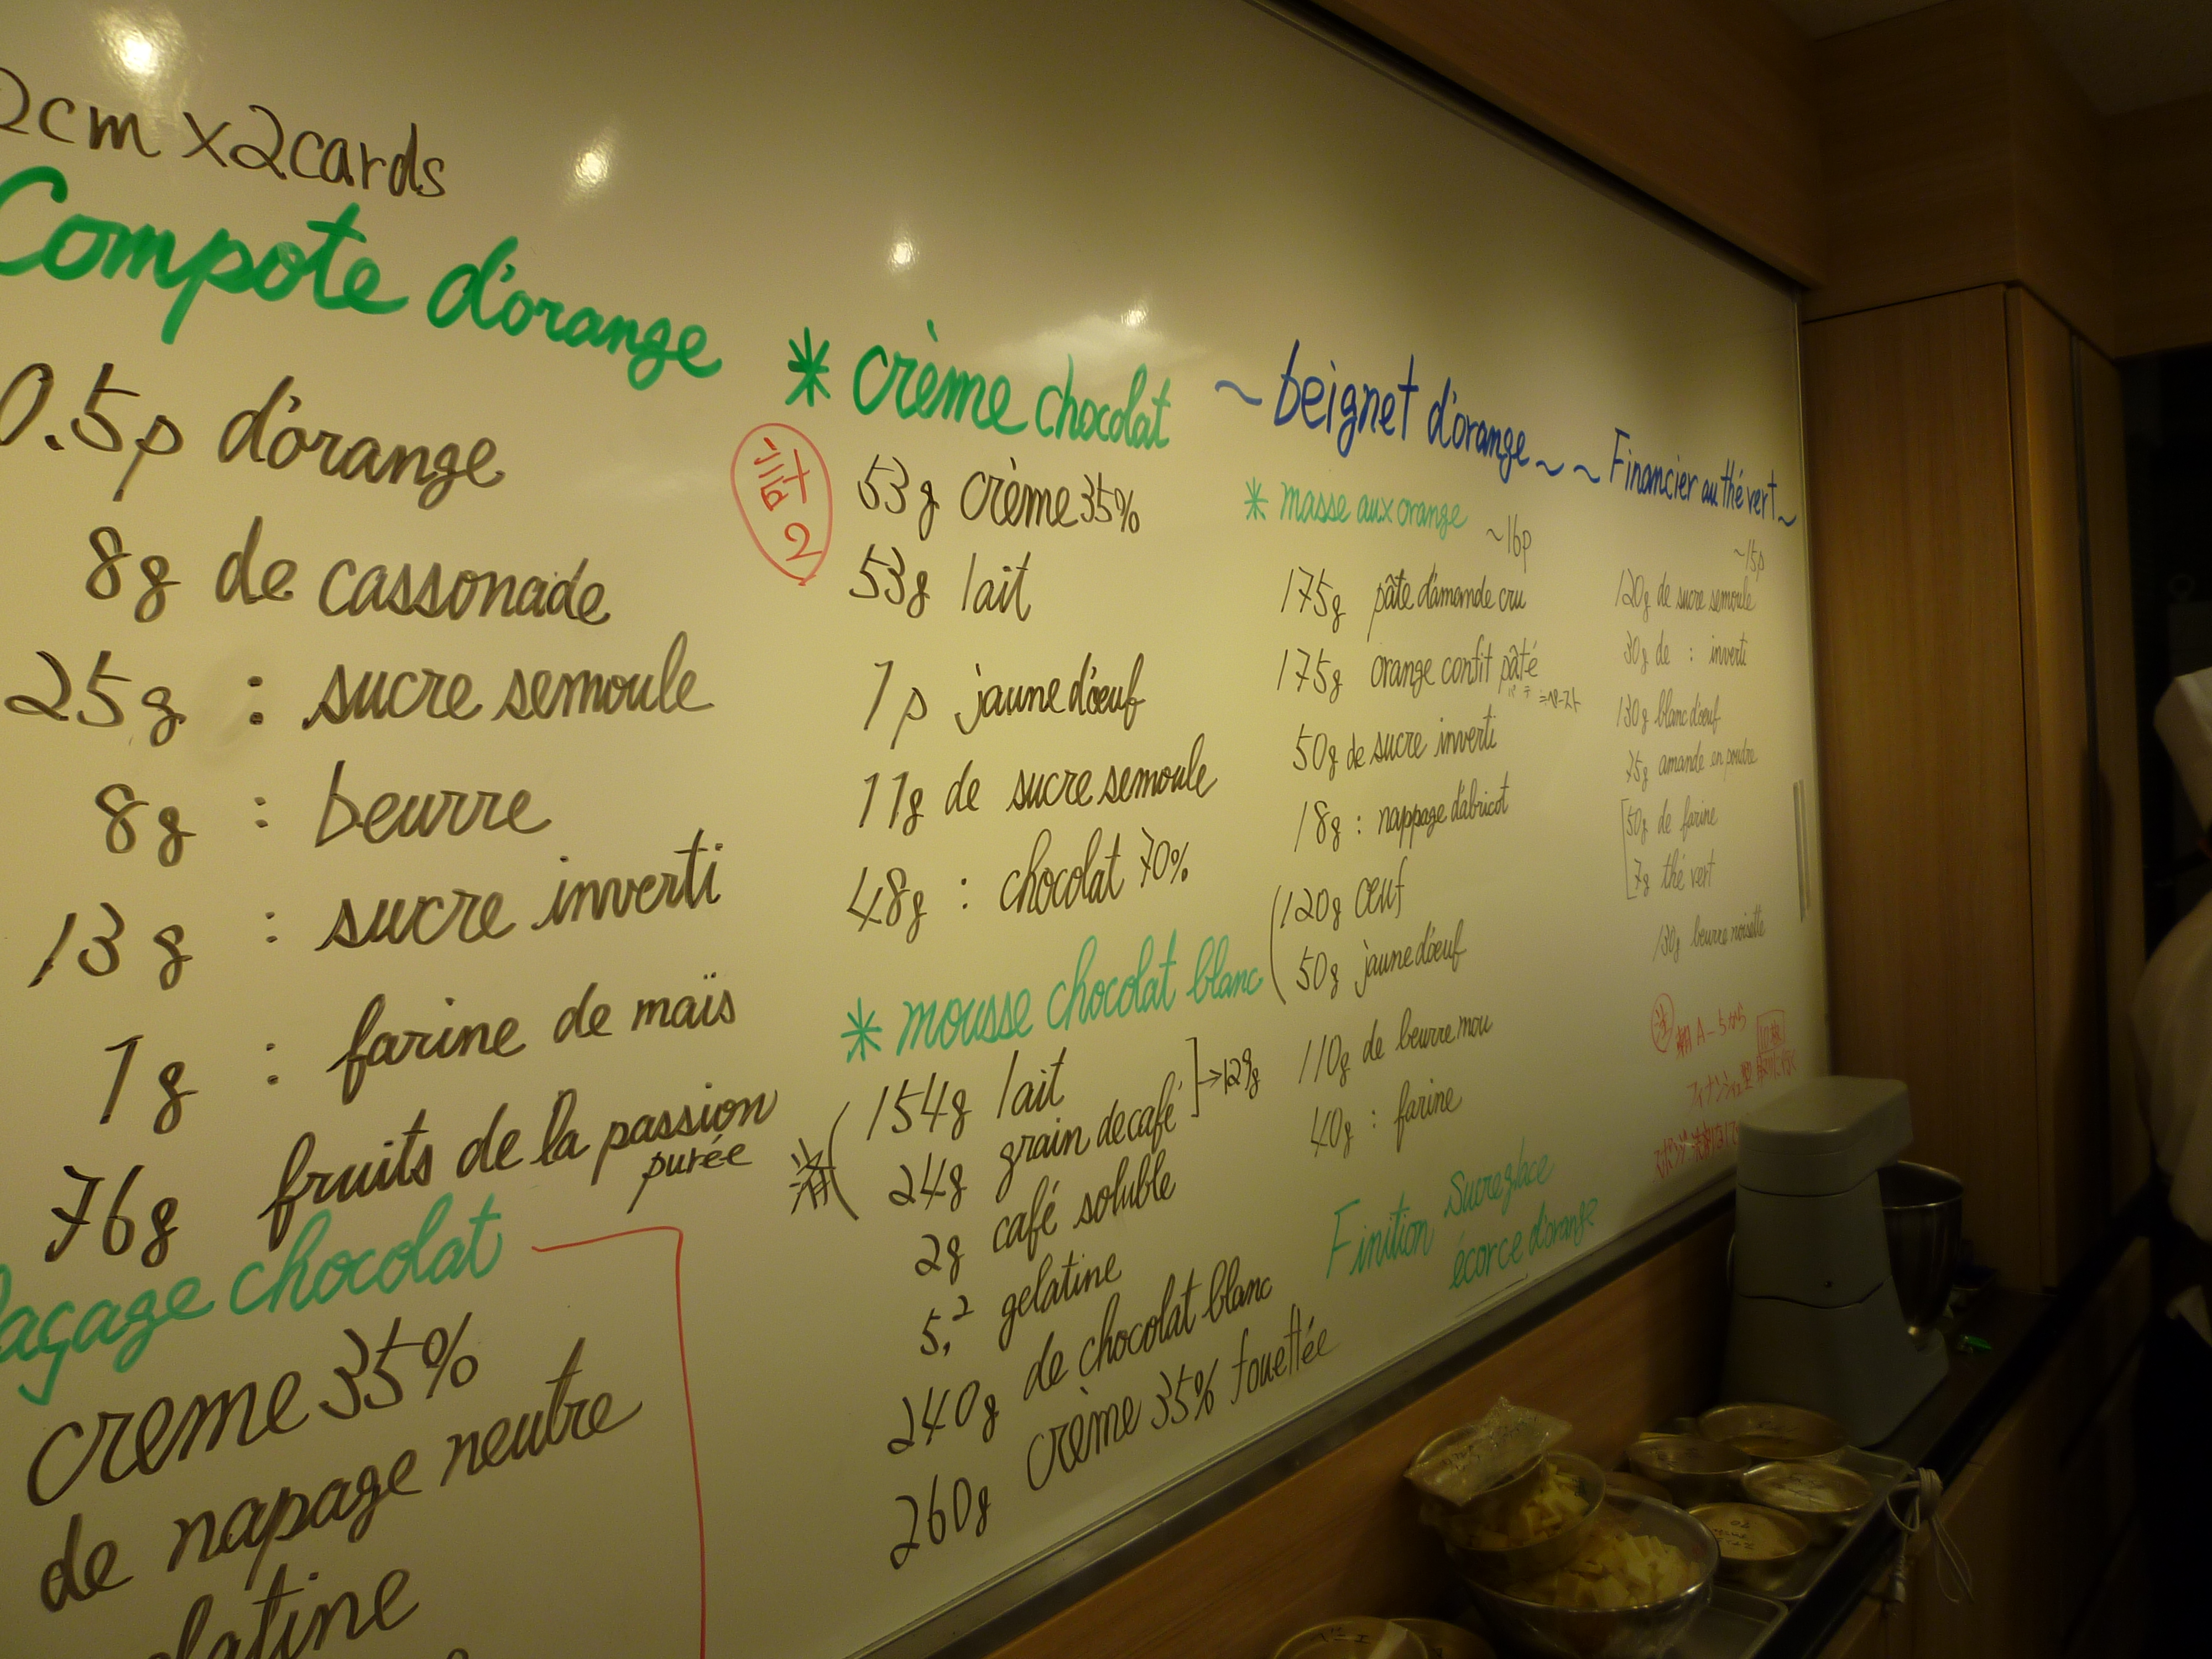 2cm x2cards
Compote d'orange
0.5p d'orange
8g de cassonade
25g : sucre semoule
8g : beurre
13g : sucre inverti
1g : farine de maïs
76g fruits de la passion
purée
laçage chocolat
creme 35%
de napage neutre
latine
* crème chocolat
計
2
53g crème 35%
53g lait
1p jaune d'œuf
11g de sucre semoule
48g : chocolat 70%
* mousse chocolat blanc
154g lait
24g grain de café
→129g
2g café soluble
5,2 gelatine
240g de chocolat blanc
260g crème 35% fouettée
~ beignet d'orange ~
* masse aux orange
~16p
175g pâte d'amande cru
175g orange confit pâté
=ペースト
50g de sucre inverti
18g : nappage d'abricot
120g œuf
50g jaune d'œuf
110g de beurre mou
40g : farine
Finition Sucre glace
écorce d'orange
~ Financier au thé vert ~
~15p
120g de sucre semoule
30g de : inverti
130g blanc d'œuf
75g amande en poudre
50g de farine
7g thé vert
130g beurre noisette
注 棚A-5から
フィナンシェ型